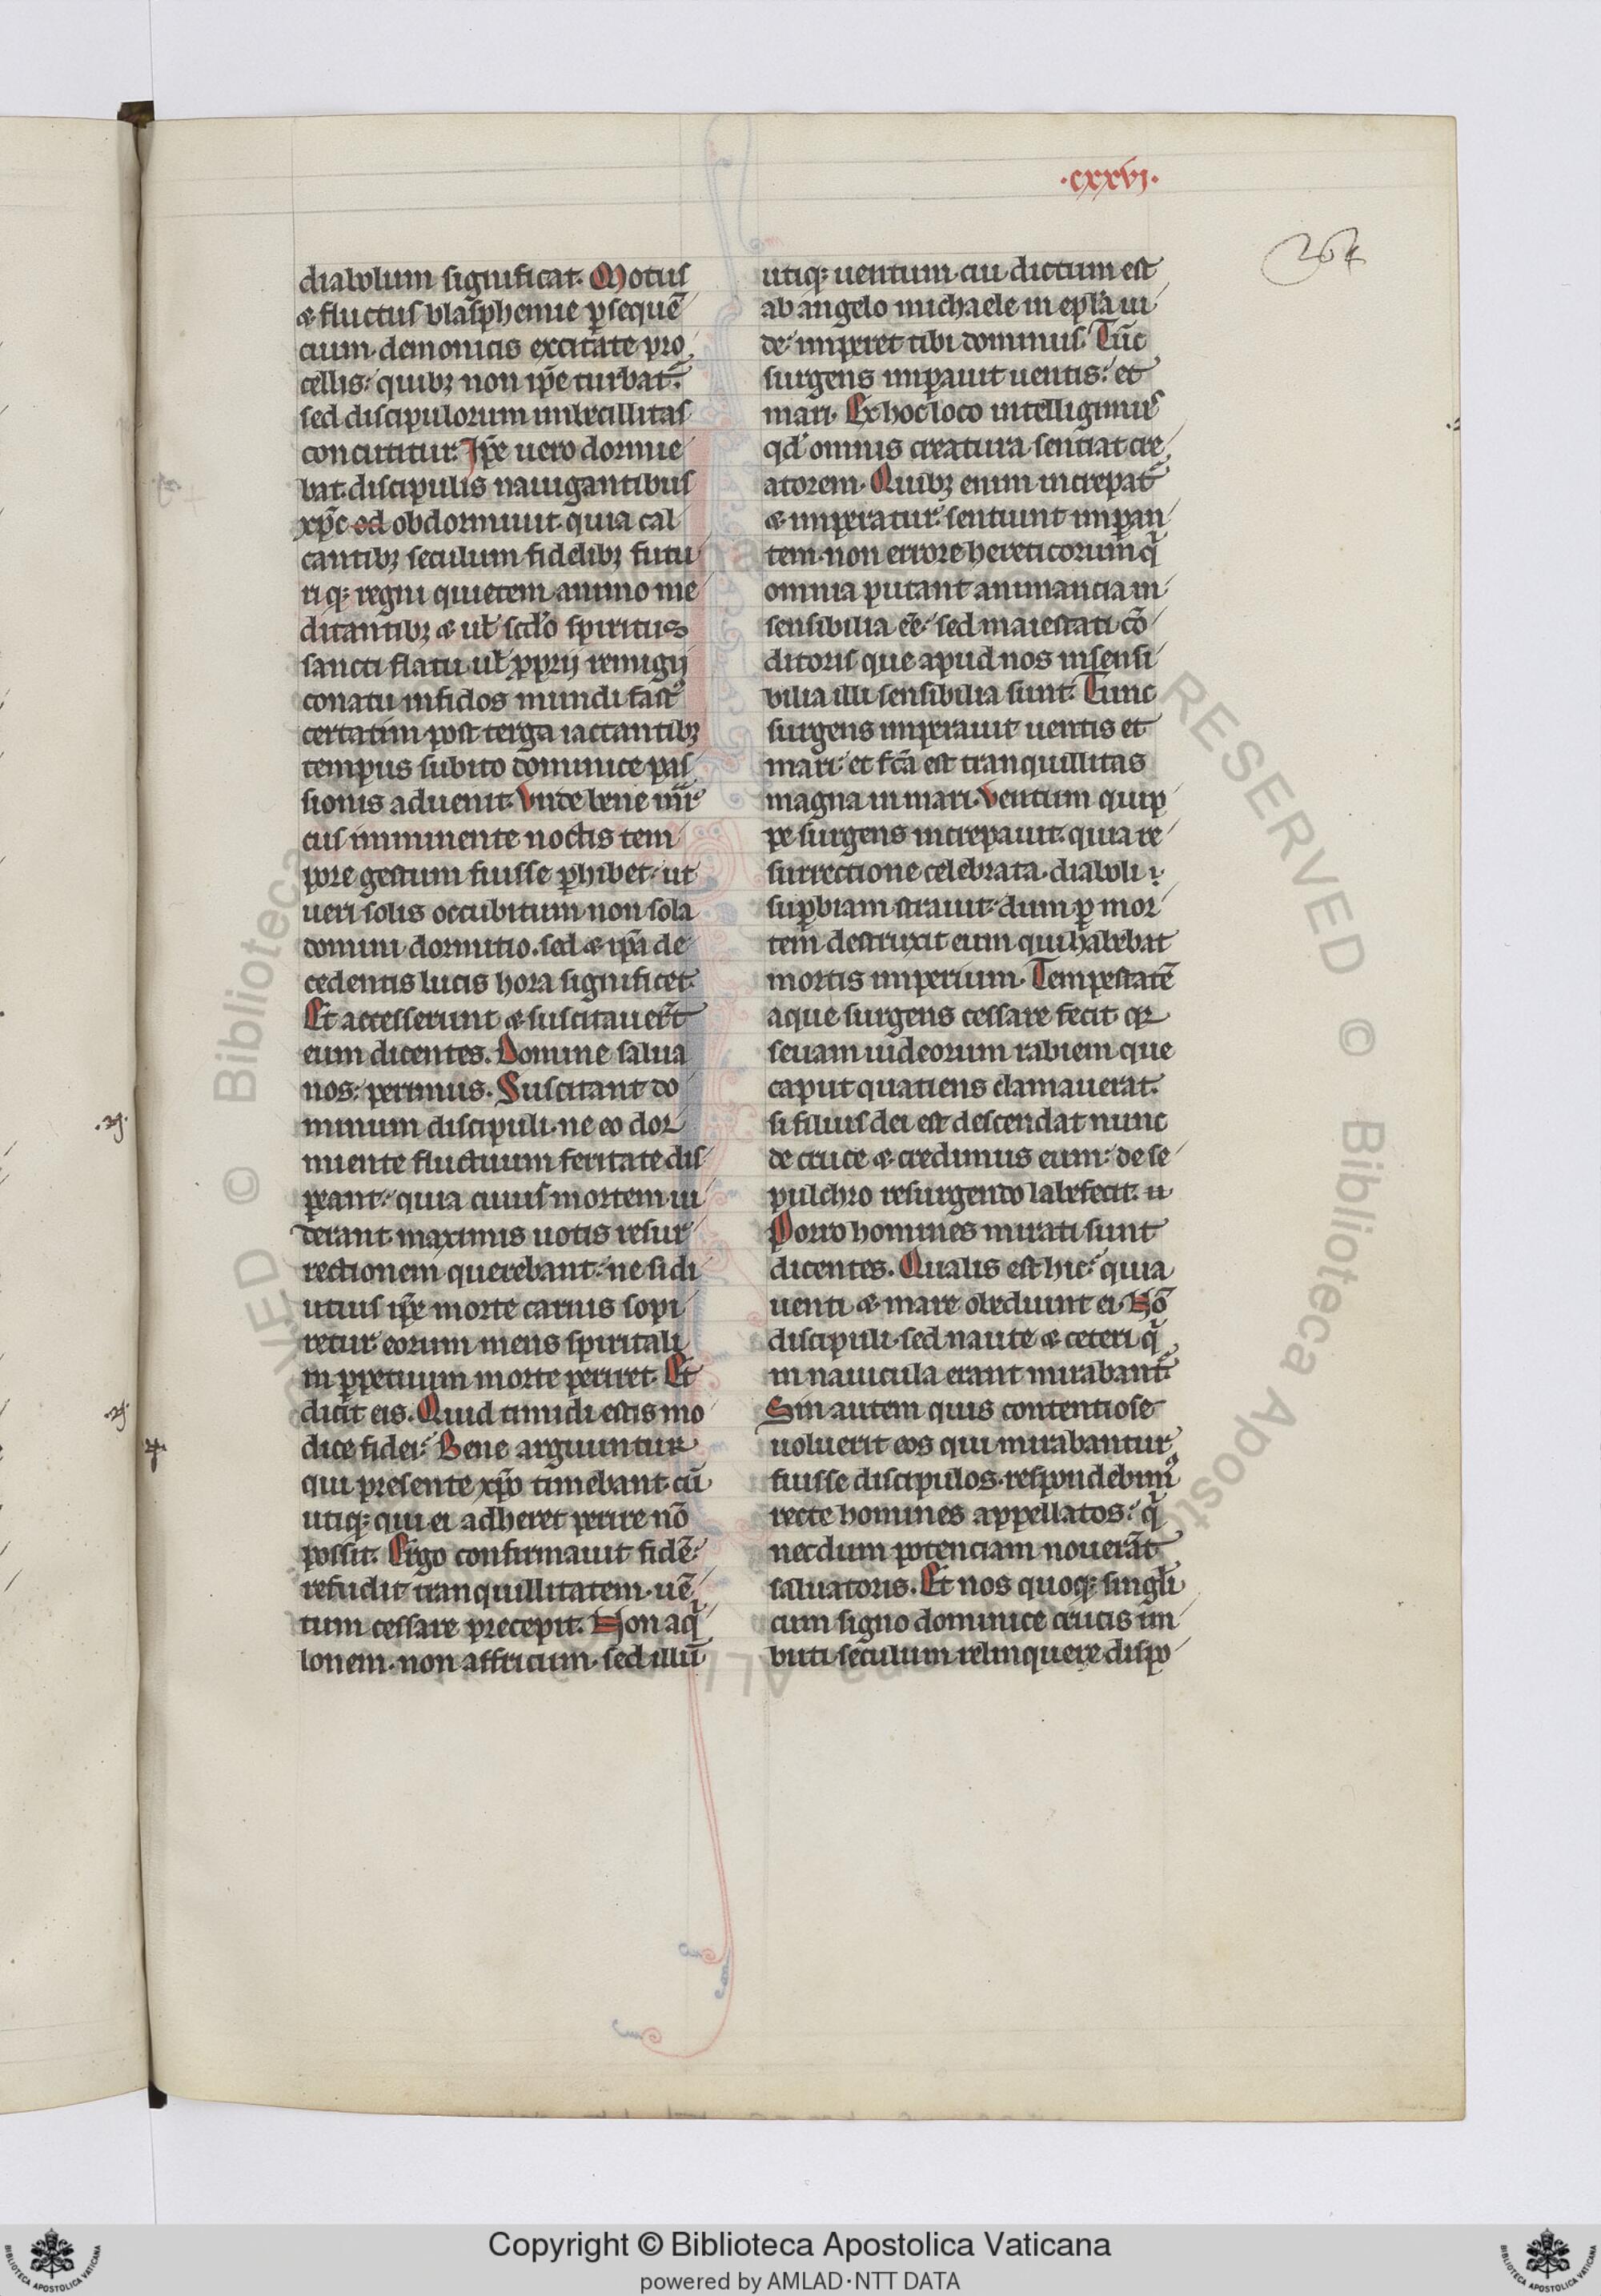 ·cxxvj·
264
diabolum significat. Motus
⁊ fluctus blasphemie ꝑsequē
cium. demonicis excitate pro
cellis: quibꝫ non ip̄e turbat᷑.
sed discipulorum imbecillitas
concutitur. Ip̄e uero dormie
bat. discipulis nauigantibus
xp̄c ed obdormiuit. quia cal
cantibꝫ seculum fidelibꝫ futu
riqꝫ regni quietem animo me
ditantibꝫ ⁊ ul̄ scd̄o spiritus
sancti flatu ul̄ ꝓprij remigij
conatu infidos mundi fastꝰ
certatim post terga iactantibꝫ
tempus subito dominice pas
sionis aduenit. Vnde bene mr̄
cus imminente noctis tem
pore gestum fuisse ꝑhibet. ut
ueri solis occubitum non sola
domini dormitio. sed ⁊ ip̄a de
cedentis lucis hora significet.
Et accesserunt ⁊ suscitauer̄t
eum dicentes. Domine salua
nos: perimus. Suscitant do
minum discipuli. ne eo dor
miente fluctuum feritate dis
ꝑeant: quia cuius mortem ui
derant maximis uotis resur
rectionem querebant: ne si di
utius ip̄e morte carnis sopi
retur eorum mens spiritali
in ꝑpetuum morte periret. Et
dicit eis. Quid timidi estis mo
dice fidei: Bene arguuntur
qui presente xp̄o timebant. cū
utiqꝫ qui ei adheret perire nō
possit. Ergo confirmauit fidē:
refudit tranquillitatem. uē
tum cessare precepit. Non aq̄
lonem. non affricum. sed illū
utiqꝫ uentum. cui dictum est
ab angelo michaele in ep̄la iu
de: imperet tibi dominus. Tūc
surgens imꝑauit uentis: et
mari. Ex hoc loco intelligimus
qd̄ omnis creatura sentiat cre
atorem. Quibꝫ enim increpat᷑
⁊ imperatur: sentiunt imꝑan
tem. non errore hereticorum q̄
omnia putant animancia in
sensibilia ēē: sed maiestati cō
ditoris que apud nos insensi
bilia illi sensibilia sunt. Tunc
surgens imperauit uentis et
mari: et fc̄a est tranquillitas
magna in mari. Ventum quip
pe surgens increpauit. quia re
surrectione celebrata. diaboli
suꝑbiam strauit: dum ꝑ mor
tem destruxit eum qui habebat
mortis imperium. Tempestatē
aque surgens cessare fecit. qꝛ
seuam iudeorum rabiem que
caput quatiens clamauerat.
si filius dei est descendat nunc
de cruce ⁊ credimus eum: de se
pulchro resurgendo labefecit. u
Porro homines mirati sunt
dicentes. Qualis est hic: quia
uenti ⁊ mare obediunt ei. Nō
discipuli. sed naute ⁊ ceteri q̄
in nauicula erant mirabant᷑.
Sin autem quis contentiose
uoluerit eos qui mirabantur
fuisse discipulos. respondebimꝰ
recte homines appellatos: q̄
necdum potenciam nouerāt
saluatoris. Et nos quoqꝫ singl̄i
cum signo dominice crucis im
buti seculum relinquere dispo
Copyright © Biblioteca Apostolica Vaticana
powered by AMLAD·NTT DATA